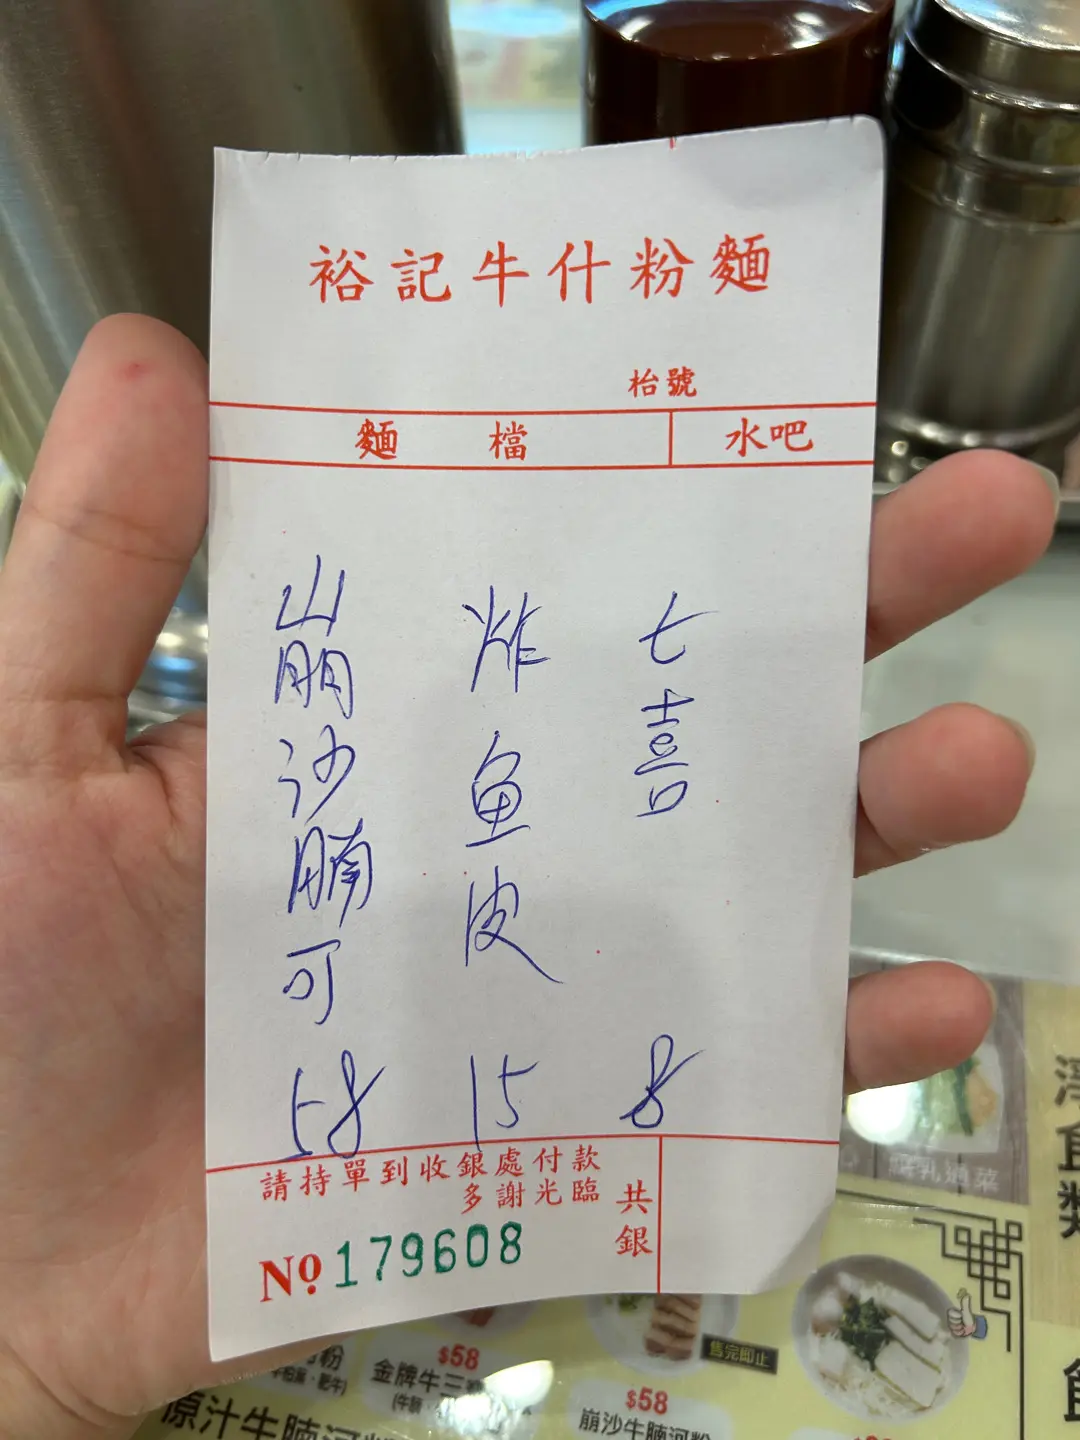 裕記牛什粉麵
枱號
麵檔
水吧
崩沙腩可
58
炸鱼皮
15
七喜
8
請持單到收銀處付款
多謝光臨
共銀
No 179608
$58
金牌牛三
售完即止
$58
崩沙牛腩河粉
原汁牛腩河粉
腐乳通菜